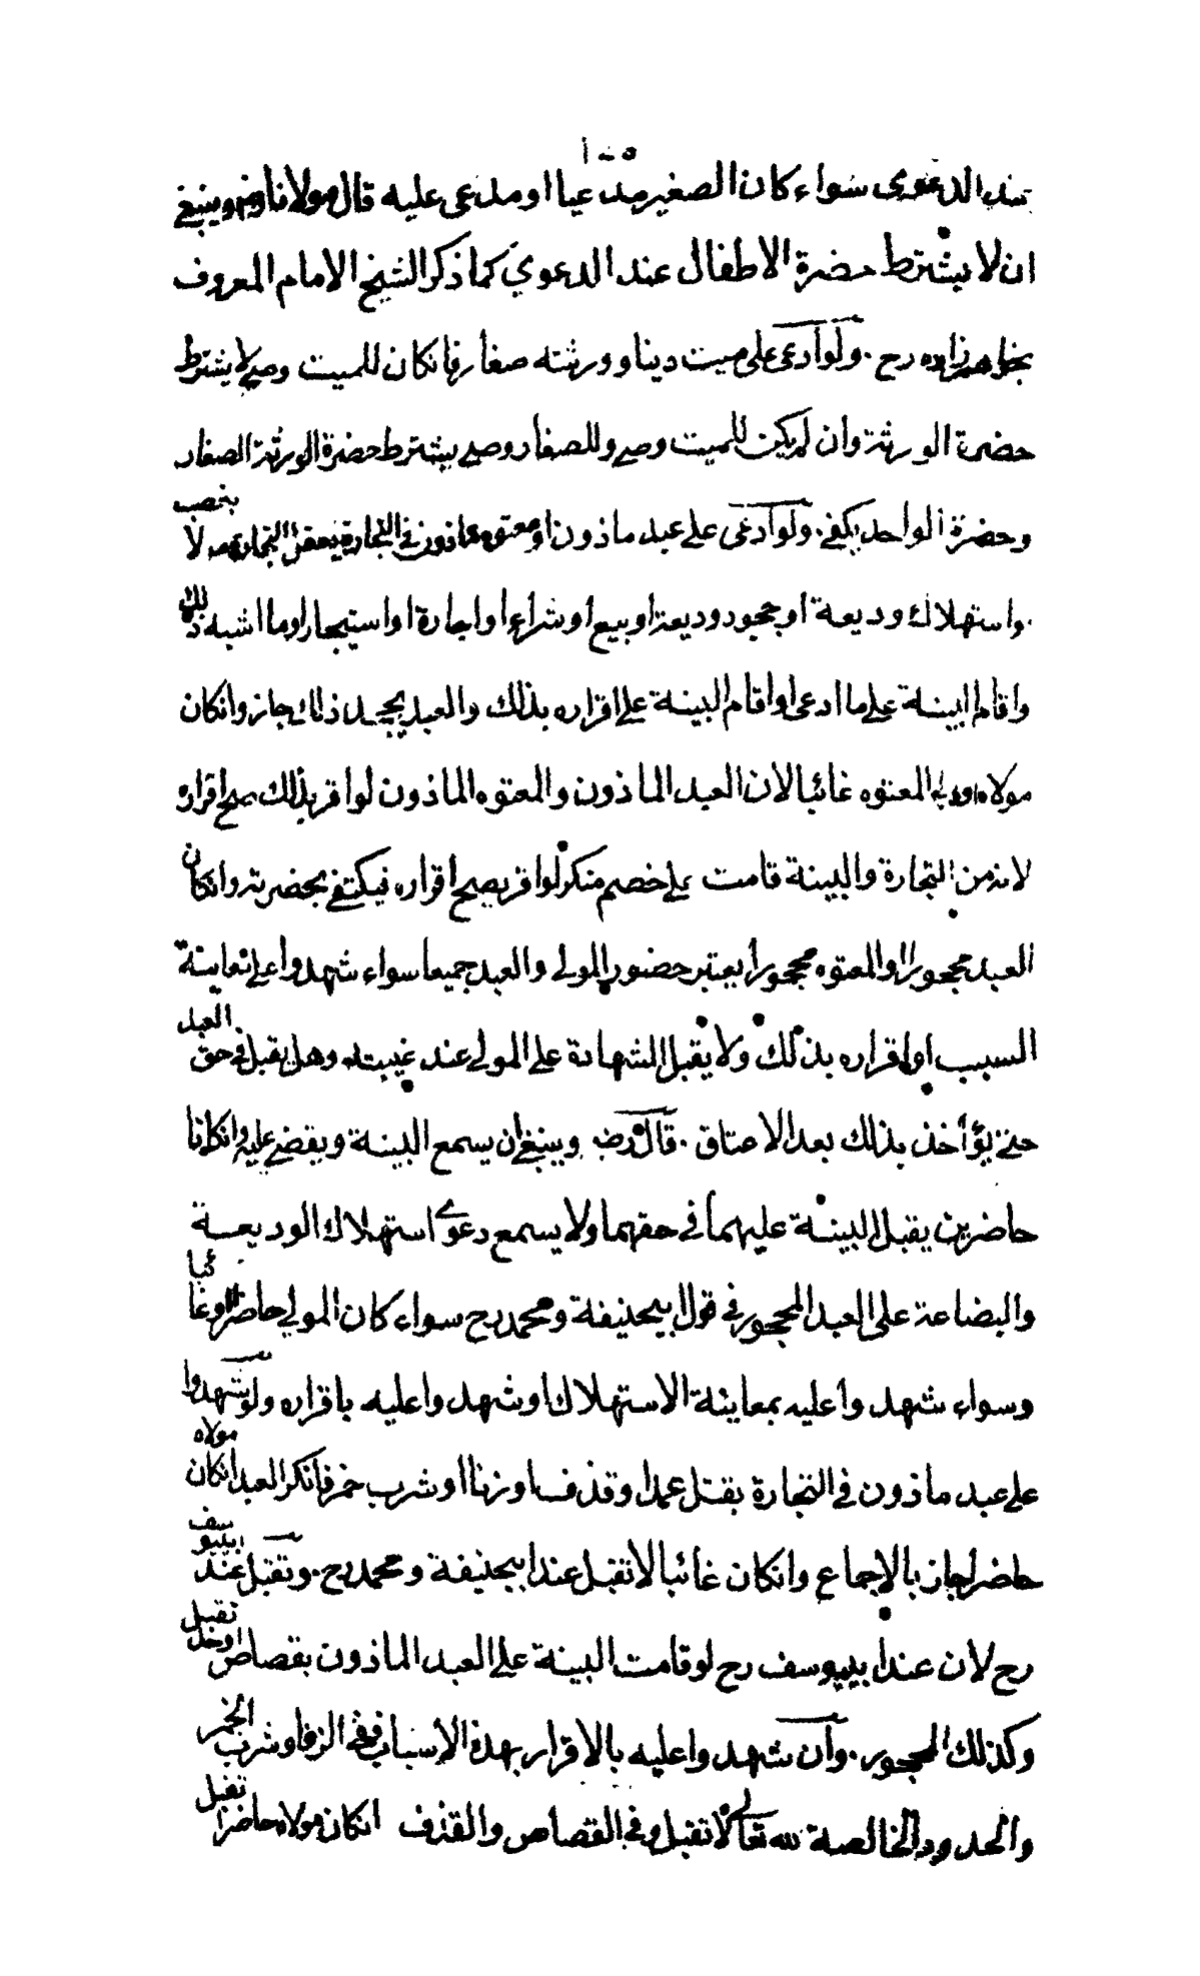 عند الدعوى سواء كان الصغير مدعيا او مدعى عليه قال مولانا رض وينبغي
ان لا يشترط حضرة الاطفال عند الدعوي كما ذكر الشيخ الامام المعروف
بخواهرزاده رح . ولو ادعى على ميت دينا وورثته صغار فانكان للميت وصي لا يشترط
حضرة الورثة وان لم يكن للميت وصي وللصغار وصي يشترط حضرة الورثة الصغار
وحضرة الواحد يكفي . ولو ادعى على عبد ماذون او معتوه ماذون في التجارة يعقل التجارة بغصب
واستهلاك وديعة او جحود وديعة او بيع او شراء او اجارة او استيجار او ما اشبه ذلك
واقام البينة على ما ادعى او اقام البينة على اقراره بذلك والعبد يجحد ذلك جاز وانكان
مولاه المعتوه غائبا لان العبد الماذون والمعتوه الماذون لو اقر بذلك صح اقراره
لانه من التجارة والبينة قامت على خصم منكر لو اقر يصح اقراره فيكتفي بحضرته وانكان
العبد محجورا او المعتوه محجورا يعتبر حضور المولي والعبد جميعا سواء شهدوا على معاينة
السبب او اقراره بذلك ولا يقبل الشهادة على المولى عند غيبته وهل يقبل في حق العبد
حتى يؤاخذ بذلك بعد الاعتاق . قال رض وينبغي ان يسمع البينة ويقضي عليه وانكانا
حاضرين يقبل البينة عليهما في حقهما ولا يسمع دعوى استهلاك الوديعة
والبضاعة على العبد المحجور في قول ابيحنيفة ومحمد رح سواء كان المولي حاضرا او غائبا
وسواء شهدوا عليه بمعاينة الاستهلاك او شهدوا عليه باقراره ولو شهدوا
على عبد ماذون في التجارة بقتل عمدا وقذف او زنا او شرب خمر فانكر العبد انكان مولاه
حاضرا جاز بالاجماع وانكان غائبا لا تقبل عند ابيحنيفة ومحمد رح . وتقبل عند ابييوسف
رح لان عند ابييوسف رح لو قامت البينة على العبد الماذون بقصاص او حد تقبل
وكذلك المحجور . وان شهدوا عليه بالاقرار بهذه الاسباب ففي الزنا وشرب الخمر
والحدود الخالصة لله تعالى لا تقبل وفي القصاص والقذف انكان مولاه حاضرا تقبل